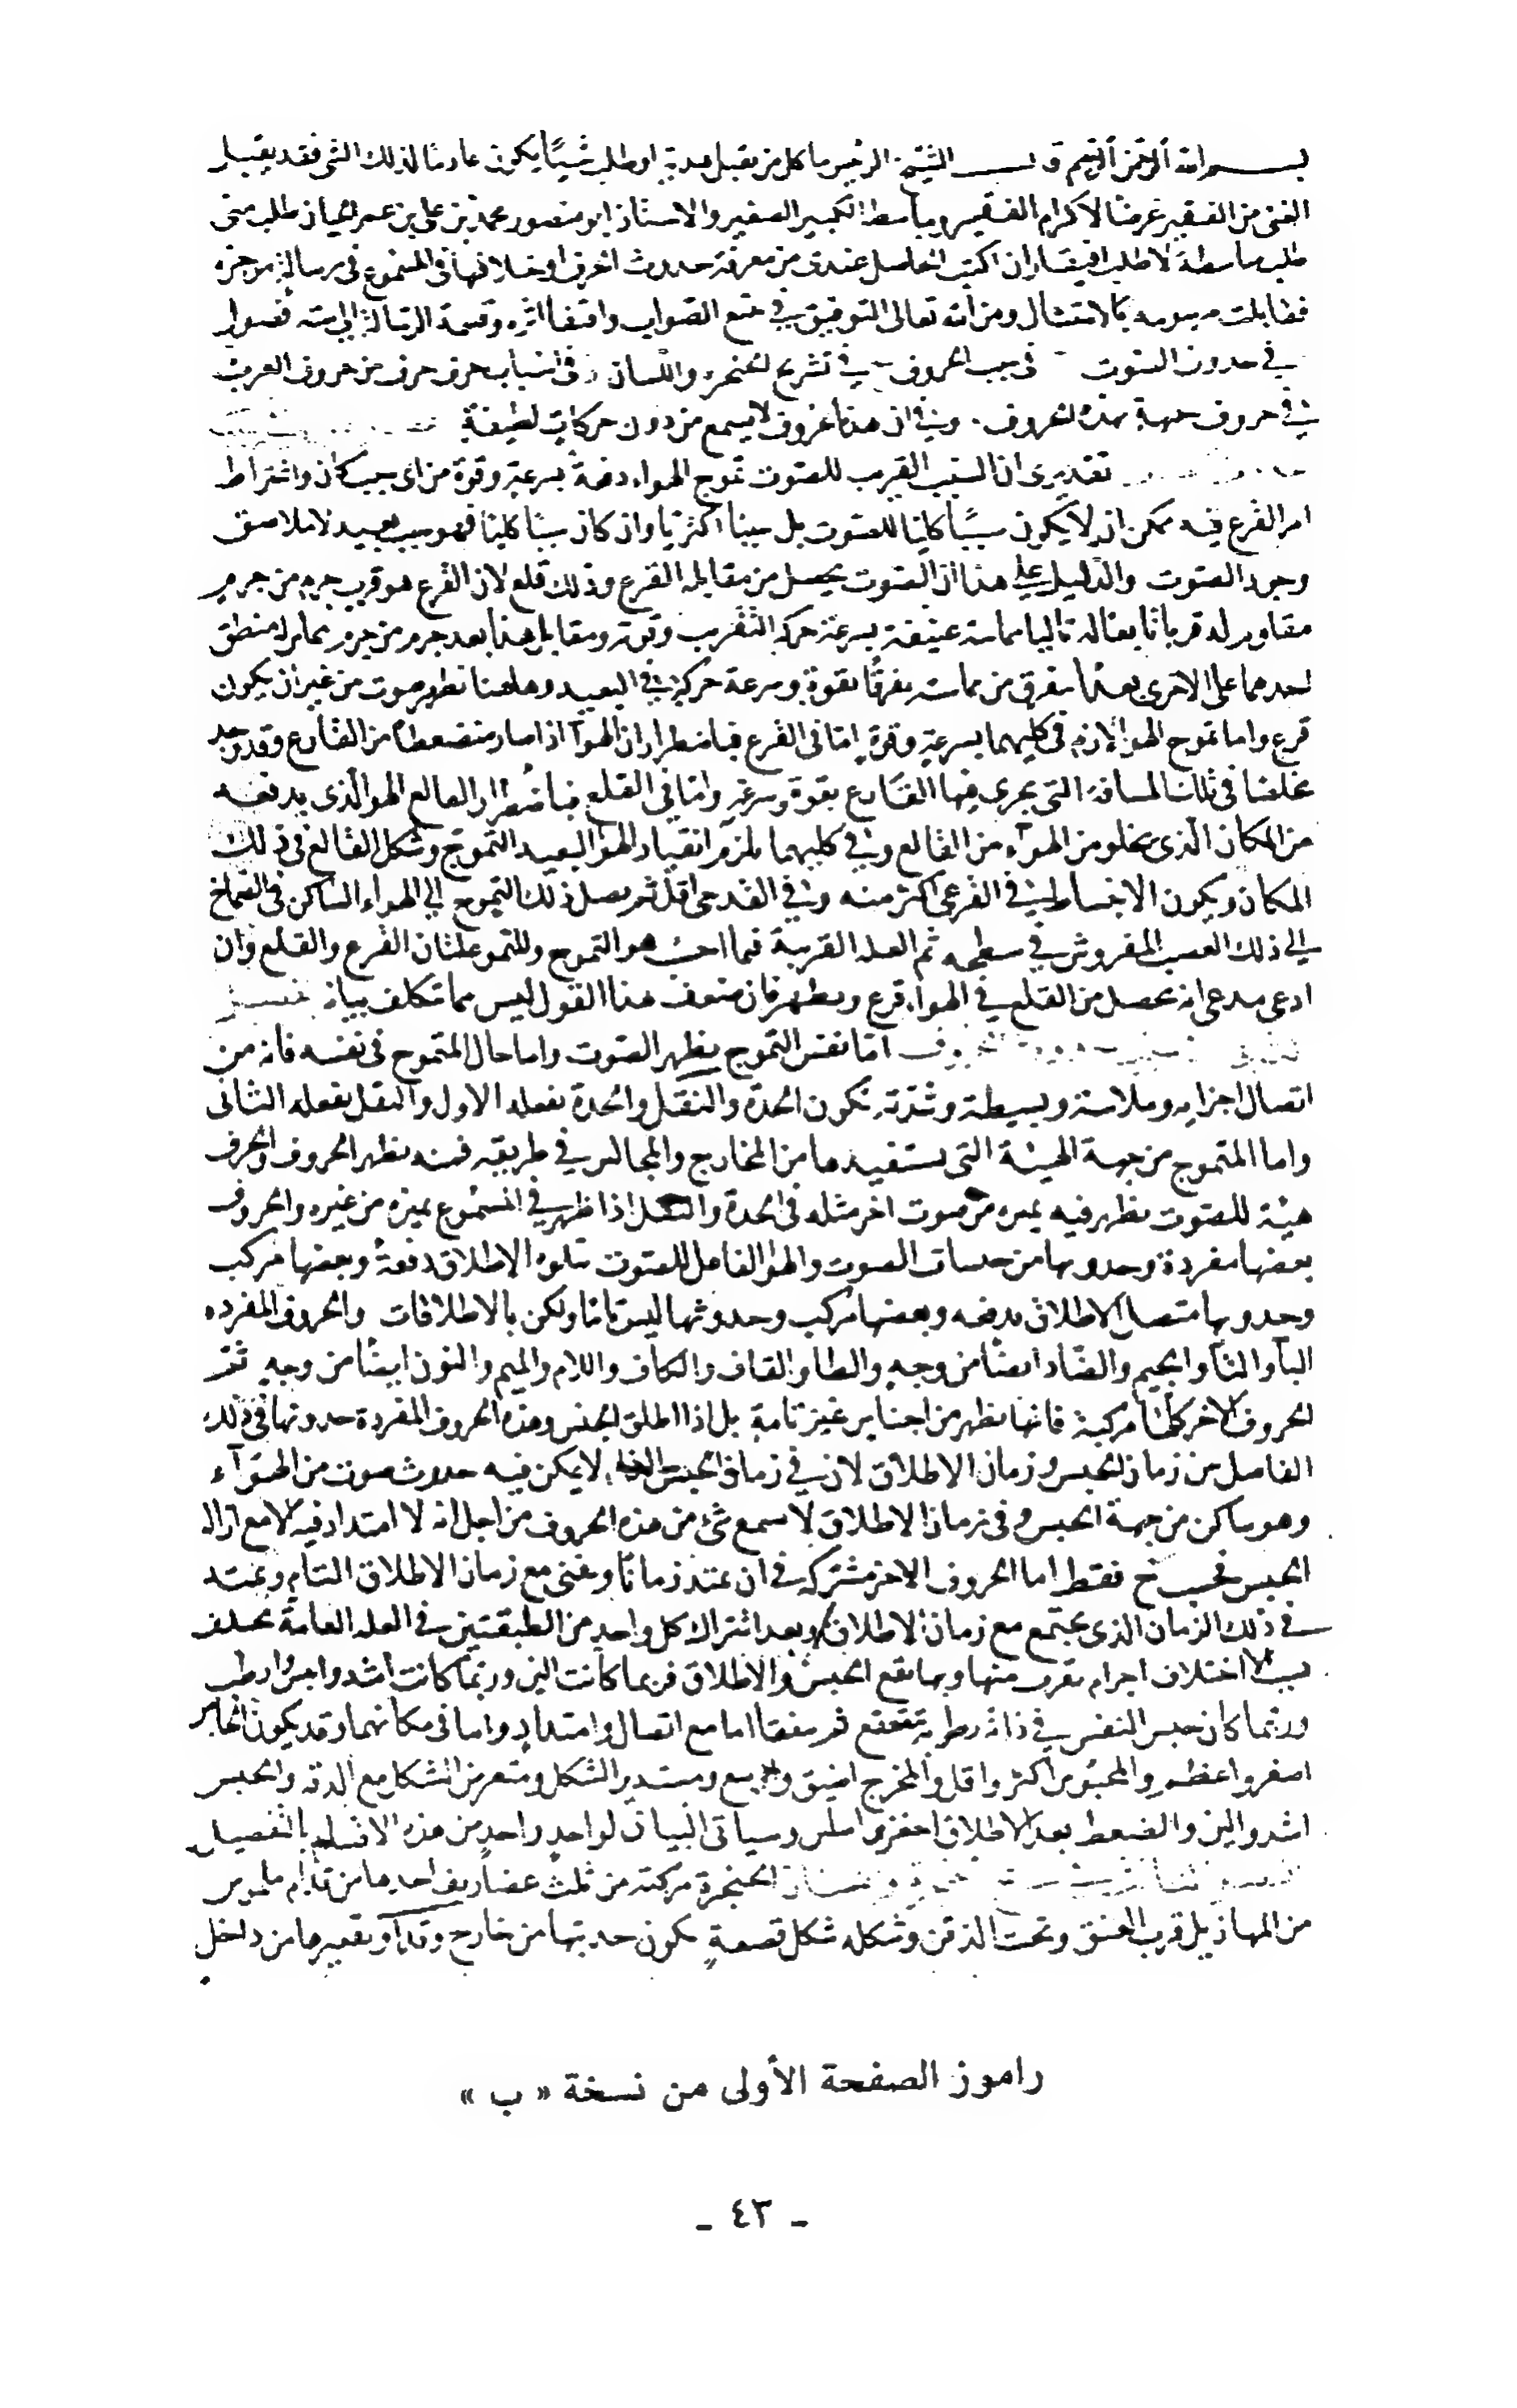 بسم الله الرحمن الرحيم قال الشيخ الرئيس ما كل من يقبل هدية او طلب شيئا يكون عادما لذلك الشئ فقد يقبل
الغنى من الفقير غرضا لاكرام الفقير ويباسط الكبير الصغير والاستاذ ابو منصور محمد بن على بن عمر الجبان طلب منى
طلب مباسطة لا طلب افتقار ان اكتب الحاصل عندى من معرفة حدوث الحرف واختلافها فى المسموع فى رسالة موجزة
فقابلت مرسومه بالامتثال ومن الله تعالى التوفيق فى الصواب واقتفا اثره وقسمة الرسالة الى سته فصول
فى حدوث الصوت فى سبب الحروف فى تشريح الحنجره واللسان فى اسباب حرف حرف من حروف العرب
فى حروف شبهة بهذه الحروف وفى ان هذه الحروف لا يسمع من دون حركات لطيفة
تقديرى ان السبب القريب للصوت تموج الهواء دفعة بسرعة وقوة من اى سبب كان واشتراط
امر القرع فيه ممكن ان لا يكون سببا كليا للصوت بل سببا اكثريا وان كان سببا كليا فهو سبب بعيد لا ملاصق
وجود الصوت والدليل على هذا ان الصوت يحصل من مقابله القرع وذلك قلع لان القرع هو قرب جرم من جرم
مقاوم له قربا يتاليا مماسة عنيفة بسرعة حركة التقريب وقوته ومقابل هذا بعد جرم من جرم مماس له منطبق
احدهما على الاخرى بعدا يفرق من مماسته تفرقا بقوة وسرعة حركة فى البعيد وهاهنا يظهر صوت من غير ان يكون
قرع واما تموج الهوا لازم فى كليهما بسرعة وقوة اما فى القرع فباضطرار ان الهوآ اذا صار منضغطا من القارع وقد وجد
مخلصا فى تلك المسافة التى يجرى فيها القارع بقوة وسرعة واما فى القلع فباضطرار القالع الهوا الذى يدفعه
من المكان الذى يخلو من الهوآء من القالع وفى كليهما يلزم انقياد الهوا البعيد التموج وشكل القالع فى ذلك
المكان ويكون الانبساط فى القرعى اكثر منه وفى القلعى اقل ثم يصل ذلك التموج الى الهواء الساكن فى الصماخ
الى ذلك العصب المفروش فى سطحه ثم العله القريبة فيما احس هو التموج وللتموج علتان القرع والقلع وان
ادعى مدعى انه يحصل من القلع فى الهواء قرع ويظهر فان ضعف هذا القول ليس مما تكلف بيانه فصل
اما نفس التموج يظهر الصوت واما حال المتموج فى نفسه فانه من
اتصال اجزايه وملاسته وبسيطه وشدته تكون الحدة والثقل والحدة تفعله الاول والثقل تفعله الثانى
واما المتموج من جهة الهيئة التى يستفيدها من المخارج والمحابس فى طريقه فمنه يظهر الحروف والحرف
هيئة للصوت يظهر فيه يميزه من صوت اخر مثله فى الحدة والثقل اذا ظهر فى المسموع يميزه من غيره والحروف
بعضها مفردة وحدوثها من حبسات الصوت والهوا الفاعل للصوت يتلوه الاطلاق دفعة وبعضها مركب
وحدوثها متصل الاطلاق بدفعه وبعضها مركب وحدوثها ليس تاما ولكن بالاطلاقات والحروف المفرده
البآ والتآ والجيم والضاد ايضا من وجه والطا والقاف والكاف واللام والميم والنون ايضا من وجه ثم
الحروف الاخر كلها مركبة فانها يظهر من احتباس غير تامة بل اذا اطلق الحبس وهذه الحروف المفردة حدوثها فى ذلك
الفاصل من زمان الحبس وزمان الاطلاق لان فى زمان الحبس لا يمكن فيه حدوث صوت من الهوآء
وهو ساكن من جهة الحبس وفى زمان الاطلاق لا يسمع شئ من هذه الحروف من اجل انه لا امتداد فيه الا مع ازاله
الحبس فحسب خ فقط اما الحروف الاخر مشتركه فى ان يمتد زمانا ويفنى مع زمان الاطلاق التام ويمتد
فى ذلك الزمان الذى يجتمع مع زمان الاطلاق وبعد اشتراك كل واحد من الطبقتين فى العله العامة يختلف
بسبب اختلاف اجرام يقرب منها وبها يقع الحبس والاطلاق فربما كانت الين وربما كانت اشد وايبس وارطب
وربما كان حبس النفس فى ذاته رطوبة تتقعقع ثم يتفقا اما مع اتصال وامتداد واما فى مكانهما وقد يكون الحابس
اصغر واعظم والمحبوس اكثر واقل والمخرج اضيق واوسع ومستدير الشكل ومتعرض الشكل مع الدقه والحبس
اشد والين والضغط بعد الاطلاق احفز واملس وسياتى البيان لواحد واحد من هذه الاقسام بالتفصيل
الحنجرة مركبة من ثلث غضاريف احدها من قدام ملموس
من المهازيل قرب العنق وتحت الذقن وشكله شكل قصعة يكون حدبتها من خارج وقدام وتقعيرها من داخل
راموز الصفحة الأولى من نسخة « ب »
ـ ٤٣ ـ